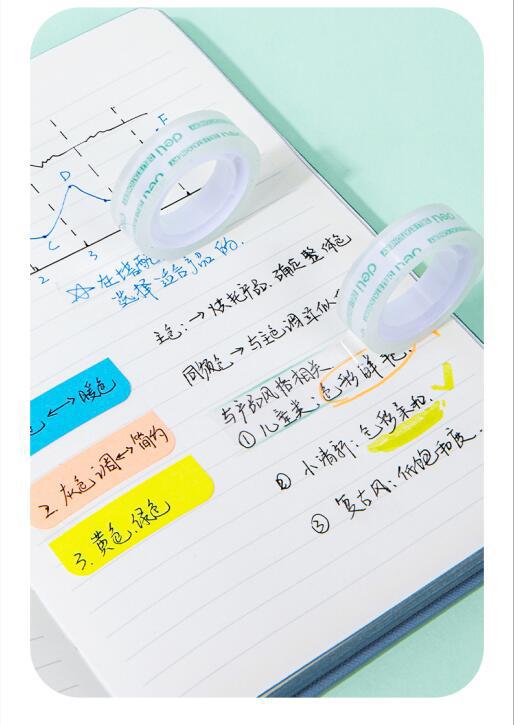 F
D
C
2
3
☆在搭配
选择适合产品的.
主色:→依托产品.确定整体色
同频色→与主色调寻似
与产品风格相关
①儿童类:色彩鲜艳.
②小清新:色彩柔和.
③复古风:低饱和度.
色↔暖色
2.灰色调↔简约
3.黄色.绿色
deli
deli
deli
deli